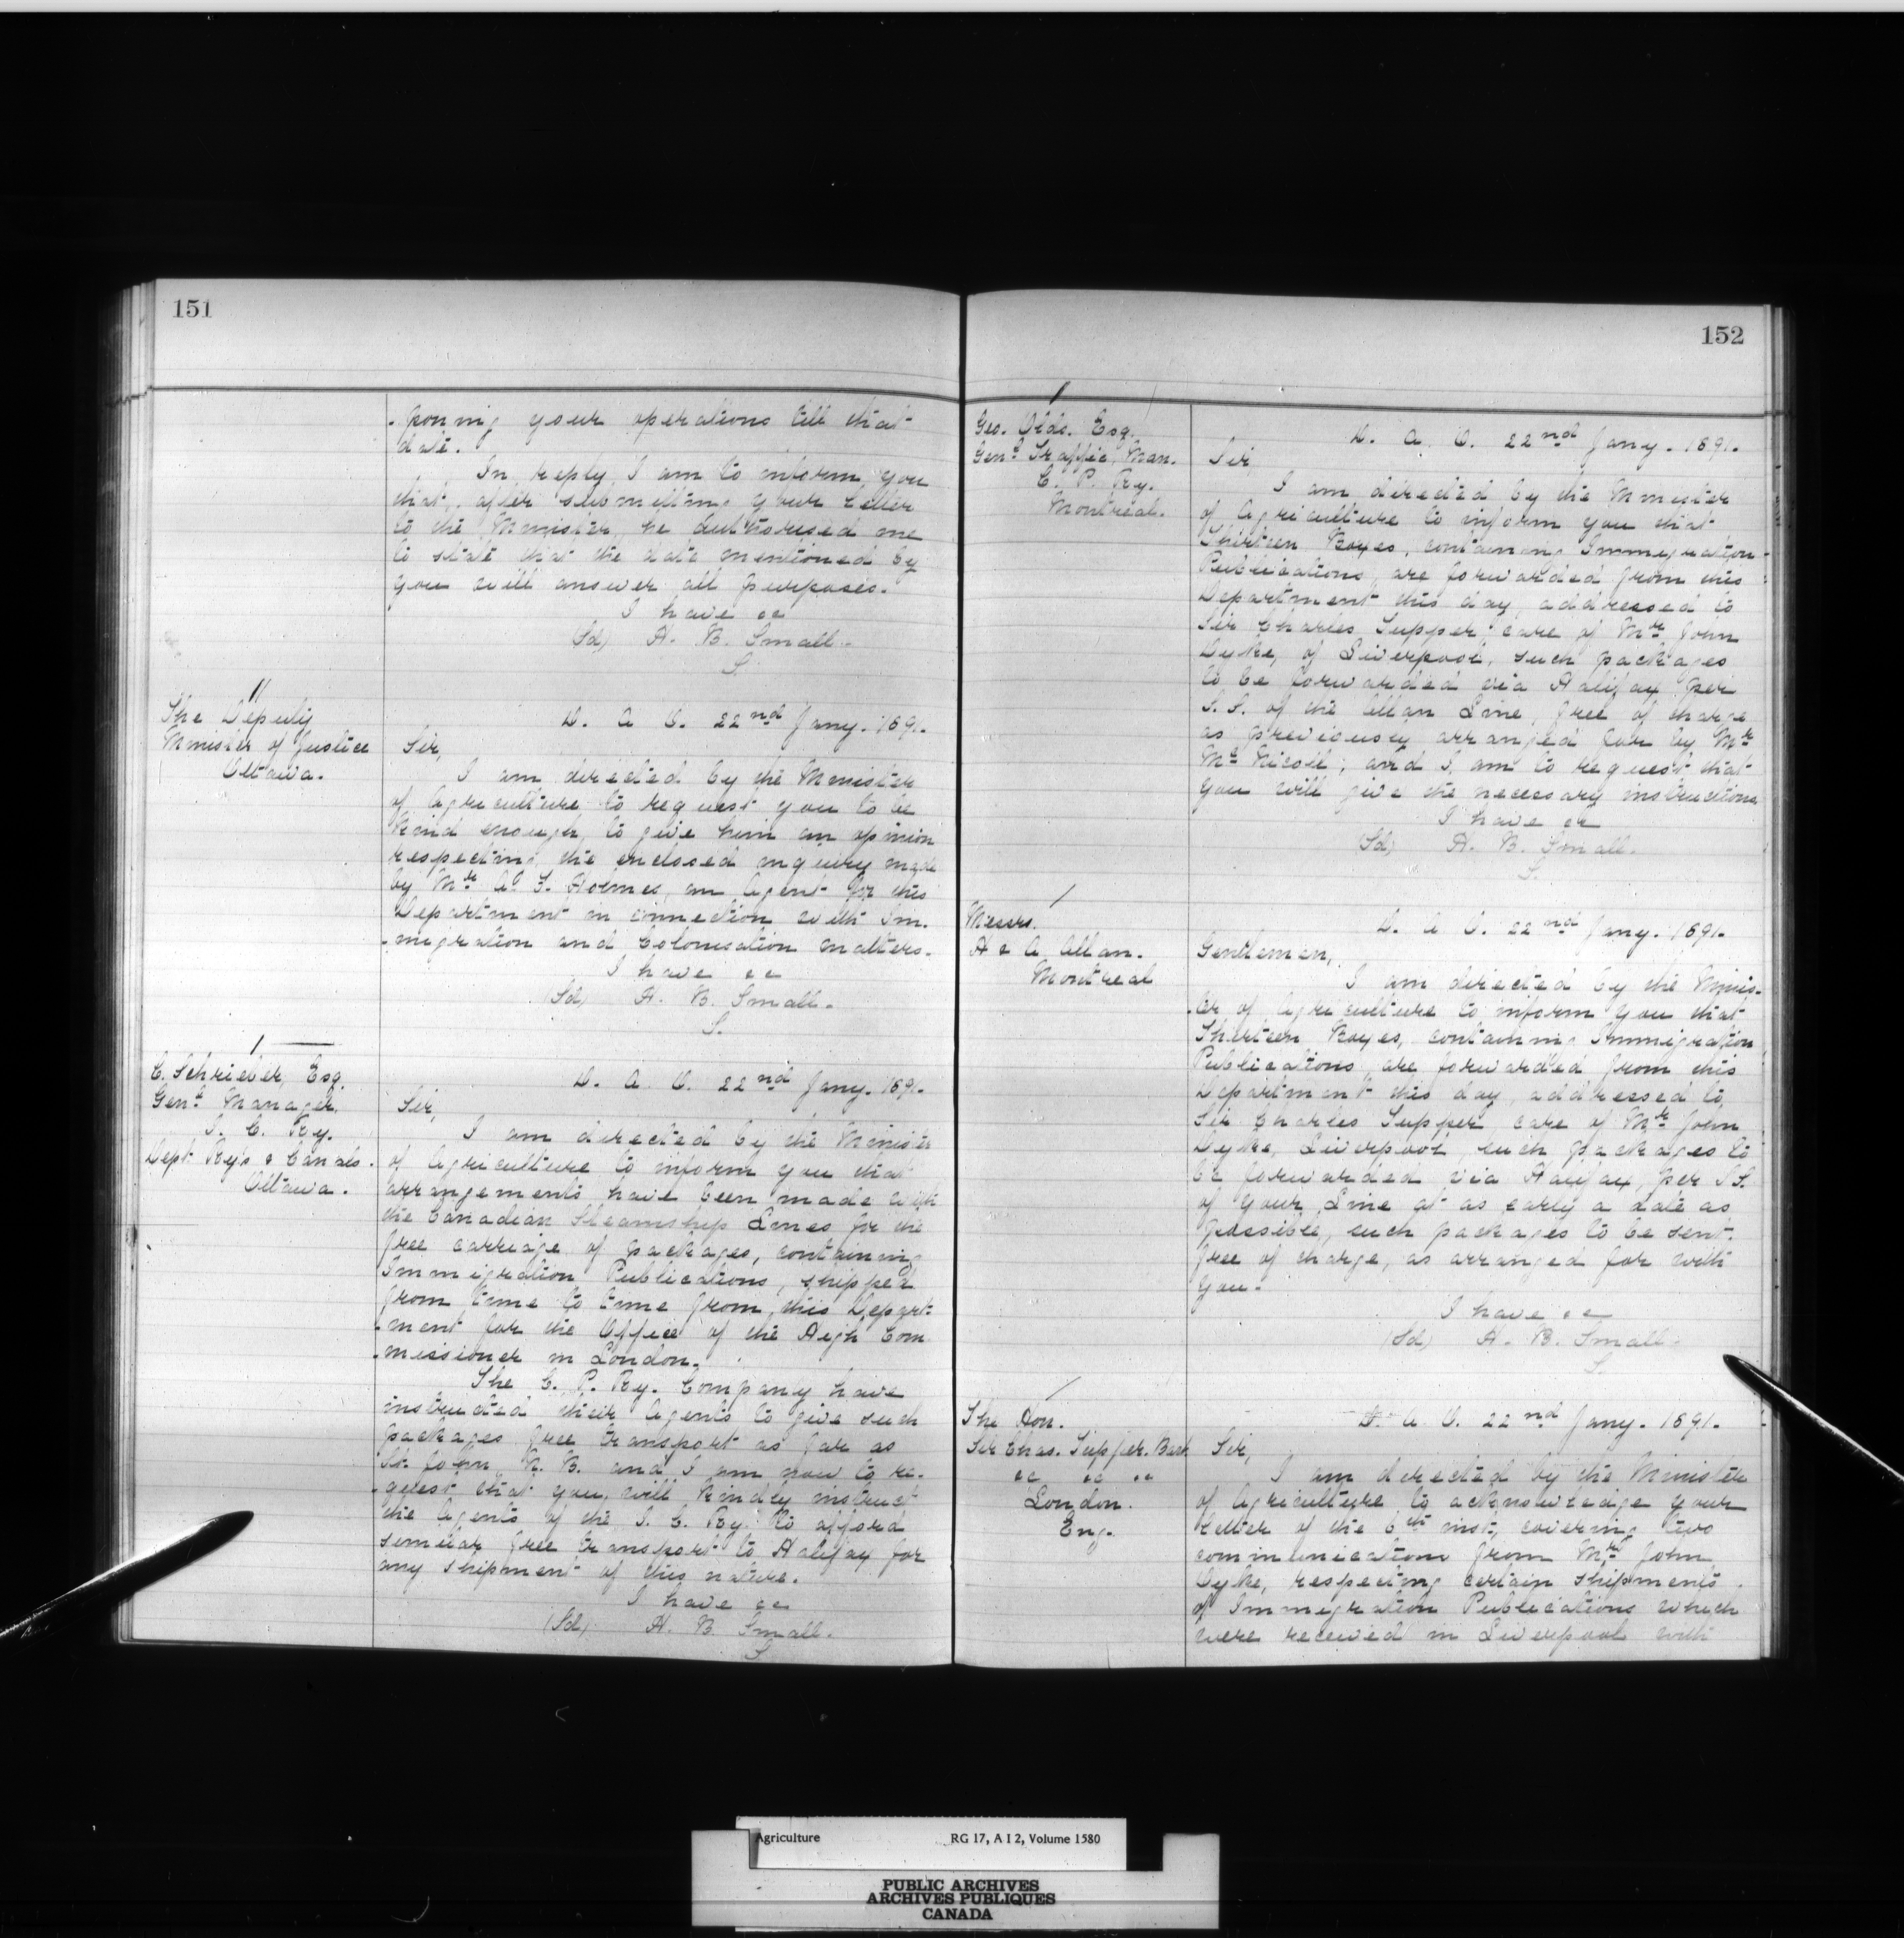 151
- poning your operations till that
date.
In reply I am to inform you
that, after submitting your letter
to the Minister, he authorised me
to state that the date mentioned by
you will answer all purposes.
I have &c
(Sd) H. B. Small.
S.
11
The Deputy
Minister of Justice
Ottawa.
D. A. O. 22nd Jany. 1891.
Sir,
I am directed by the Minister
of Agriculture to request you to be
kind enough to give him an opinion
respecting the enclosed inquiry made
by Mr. A. F. Holmes, an Agent for this
Department in connection with Im-
-migration and Colonisation matters.
I have &c
(Sd) H. B. Small.
S.
1
C. Schrieber, Esq.
Genl. Manager.
I. C. Ry.
Dept Rys & Canals.
Ottawa.
D. A. O. 22nd Jany. 1891.
Sir,
I am directed by the Minister
of Agriculture to inform you that
arrangements have been made with
the Canadian Steamship Lines for the
free carriage of packages, containing
Immigration Publications, shipped
from time to time from this Depart-
-ment for the Office of the High Com
-missioner in London.
The C. P. Ry. Company have
instructed their Agents to give such
packages free transport as far as
St. John N. B. and I am now to re-
-quest that you will kindly instruct
the Agents of the I. C. Ry. to afford
similar free transport to Halifax for
any shipment of this nature.
I have &c
(Sd) H. B. Small.
S
152
1
Geo. Olds. Esq.
Genl. Traffic Man.
C. P. Ry.
Montreal.
D. A. O. 22nd Jany. 1891.
Sir
I am directed by the Minister
of Agriculture to inform you that
Thirteen Boxes, containing Immigration
Publications, are forwarded from this
Department this day, addressed to
Sir Charles Tupper, care of Mr. John
Dyke, of Liverpool, such packages
to be forwarded via Halifax per
S.S. of the Allan Line, free of charge
as previously arranged for by Mr
Mc Nicoll; and I am to request that
you will give the necessary instructions.
I have &c
(Sd) H. B. Small.
S.
1
Messrs.
H & A Allan.
Montreal
D. A. O. 22nd Jany. 1891.
Gentlemen,
I am directed by the Minis-
-ter of Agriculture to inform you that
Thirteen Boxes, containing Immigration
Publications, are forwarded from this
Department this day, addressed to
Sir Charles Tupper care of Mr. John
Dyke, Liverpool, such packages to
be forwarded via Halifax, per S.S.
of your Line at as early a date as
possible, such packages to be sent
free of charge, as arranged for with
you.
I have &c
(Sd) H. B. Small.
S.
The Hon.
Sir Chas. Tupper. Bart
&c &c &c
London.
Eng.
D. A. O. 22nd Jany. 1891.
Sir,
I am directed by the Minister
of Agriculture to acknowledge your
letter of the 6th inst, covering two
communications from Mr. John
Dyke, respecting certain shipments
of Immigration Publications which
were received in Liverpool with
Agriculture RG 17, A I 2, Volume 1580
PUBLIC ARCHIVES
ARCHIVES PUBLIQUES
CANADA